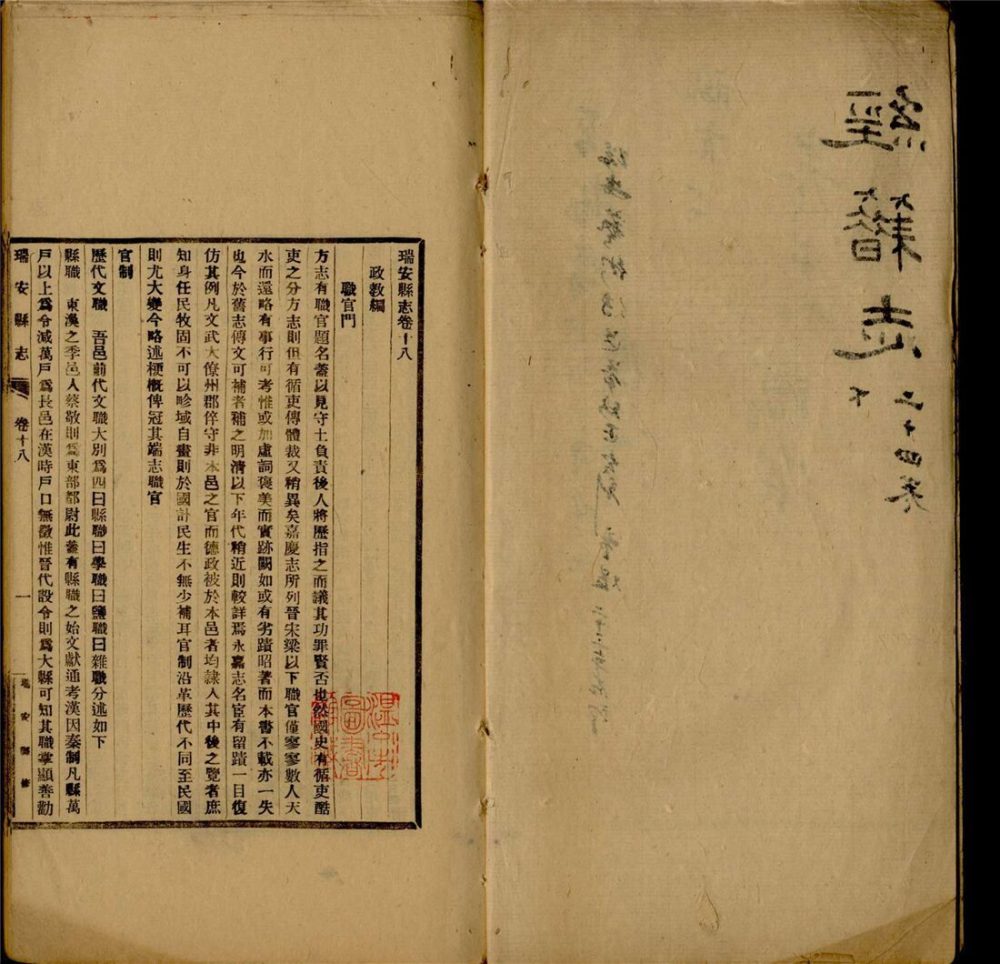 經籍志下
二十四卷
瑞安縣志卷十八
政敎編
職官門
方志有職官題名蓋以見守土負責後人將歷指之而議其功罪賢否也然國史有循吏酷
吏之分方志則但有循吏傳體裁又稍異矣嘉慶志所列晉宋梁以下職官僅寥寥數人天
水而還略有事行可考惟或加虛詞褒美而實跡闕如或有劣蹟昭著而本書不載亦一失
也今於舊志傳文可補者補之明清以下年代稍近則較詳焉永嘉志名宦有留蹟一目復
仿其例凡文武大僚州郡倅守非本邑之官而德政被於本邑者均隷入其中後之覽者庶
知身任民牧固不可以畛域自畫則於國計民生不無少補耳官制沿革歷代不同至民國
則尤大變今略述梗槪俾冠其端志職官
官制
歷代文職 吾邑前代文職大別爲四曰縣職曰學職曰鹽職曰雜職分述如下
縣職 東漢之季邑人蔡敬則爲東部都尉此蓋有縣職之始文獻通考漢因秦制凡縣萬
戶以上爲令減萬戶爲長邑在漢時戶口無徵惟晉代設令則爲大縣可知其職掌顯善勸
瑞安縣志 卷十八 一